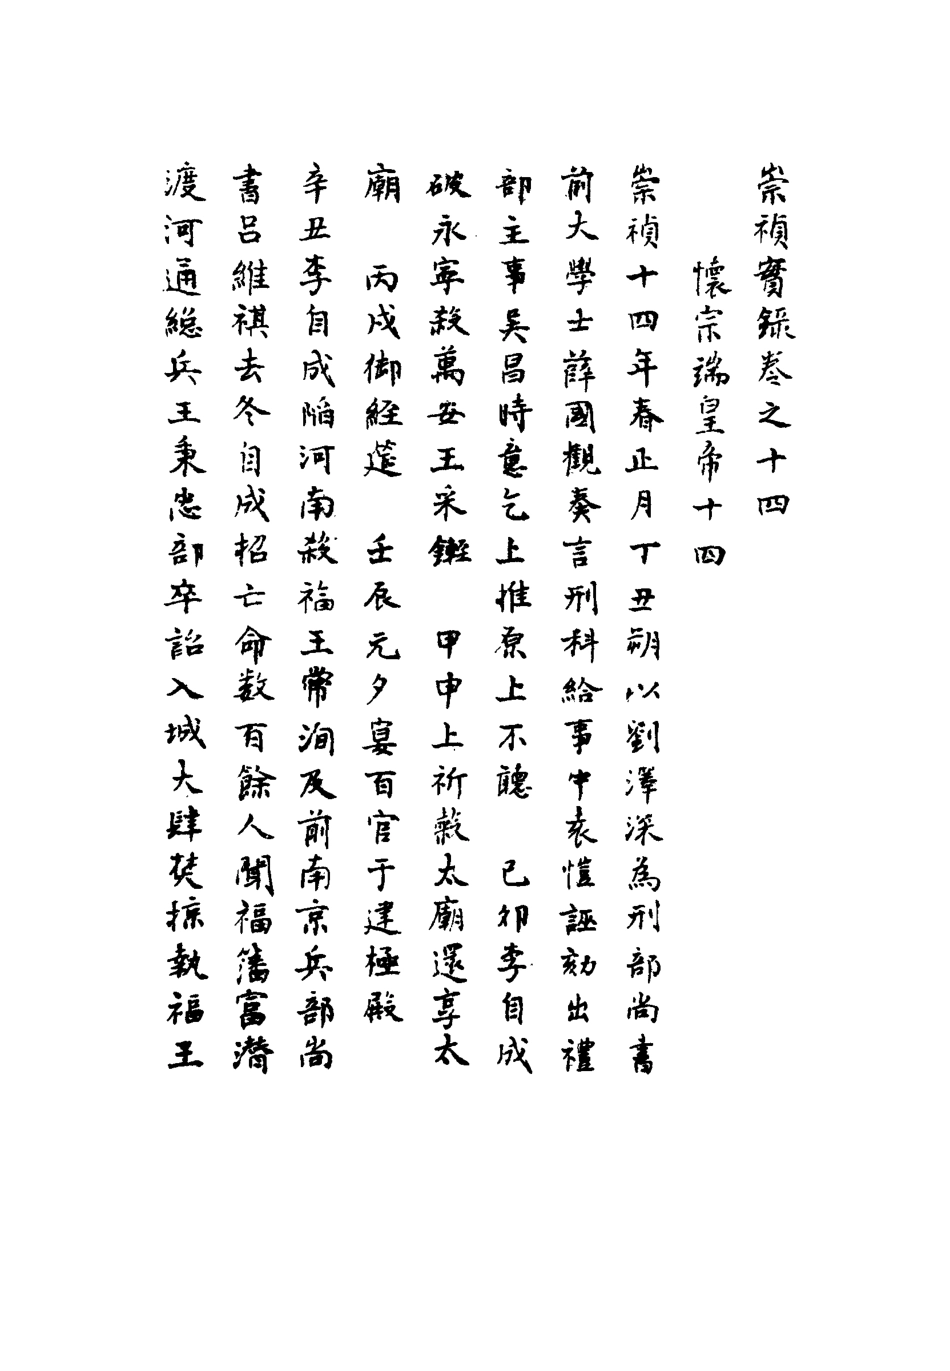 崇禎實錄卷之十四
懷宗端皇帝十四
崇禎十四年春正月丁丑朔以劉澤深為刑部尚書
前大學士薛國觀奏言刑科給事中袁愷誣劾出禮
部主事吳昌時意乞上推原上不聽　己卯李自成
破永寧殺萬安王采𨰻　甲申上祈穀太廟還享太
廟　丙戌御經筵　壬辰元夕宴百官于建極殿
辛丑李自成陷河南殺福王常洵及前南京兵部尚
書呂維祺去冬自成招亡命数百餘人聞福藩富潛
渡河通總兵王秉忠部卒詒入城大肆焚掠執福王